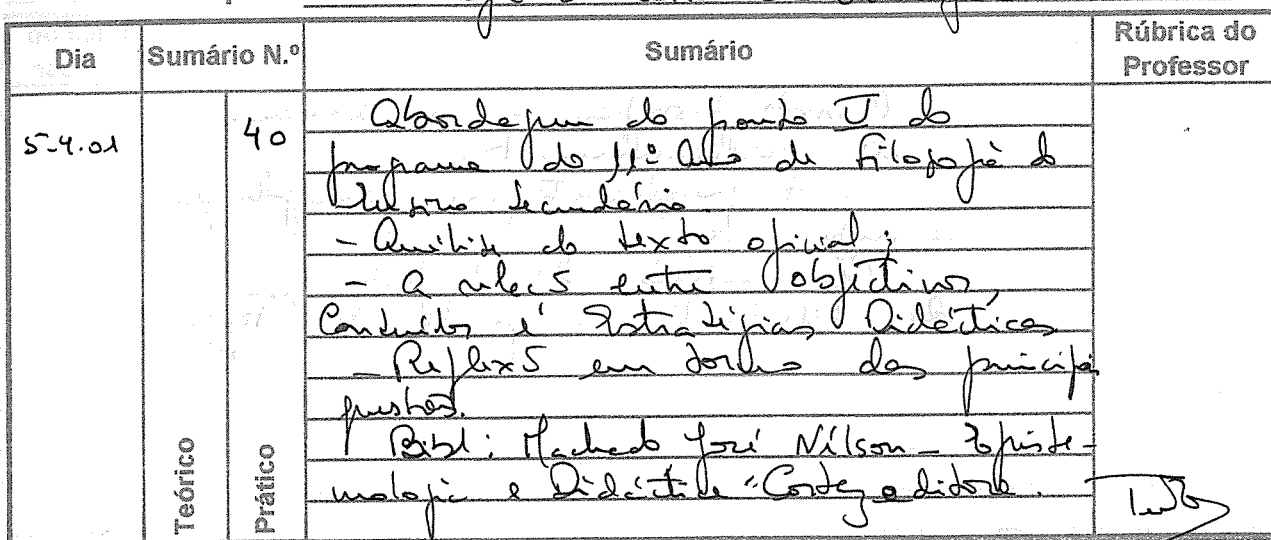 Dia Sumário N.º Sumário Rúbrica do Professor
5-4.01 40 Abordagem do ponto II do
programa do 11º Ano de Filosofia do
Ensino Secundário.
- Análise do texto oficial;
- A relação entre objectivos,
Conteúdos e Estratégias Didácticas
- Reflexão em torno das principais
questões.
Bibl: Machado José Nílson - Episte-
mologia e Didáctica "Cortez editora.
Teórico
Prático